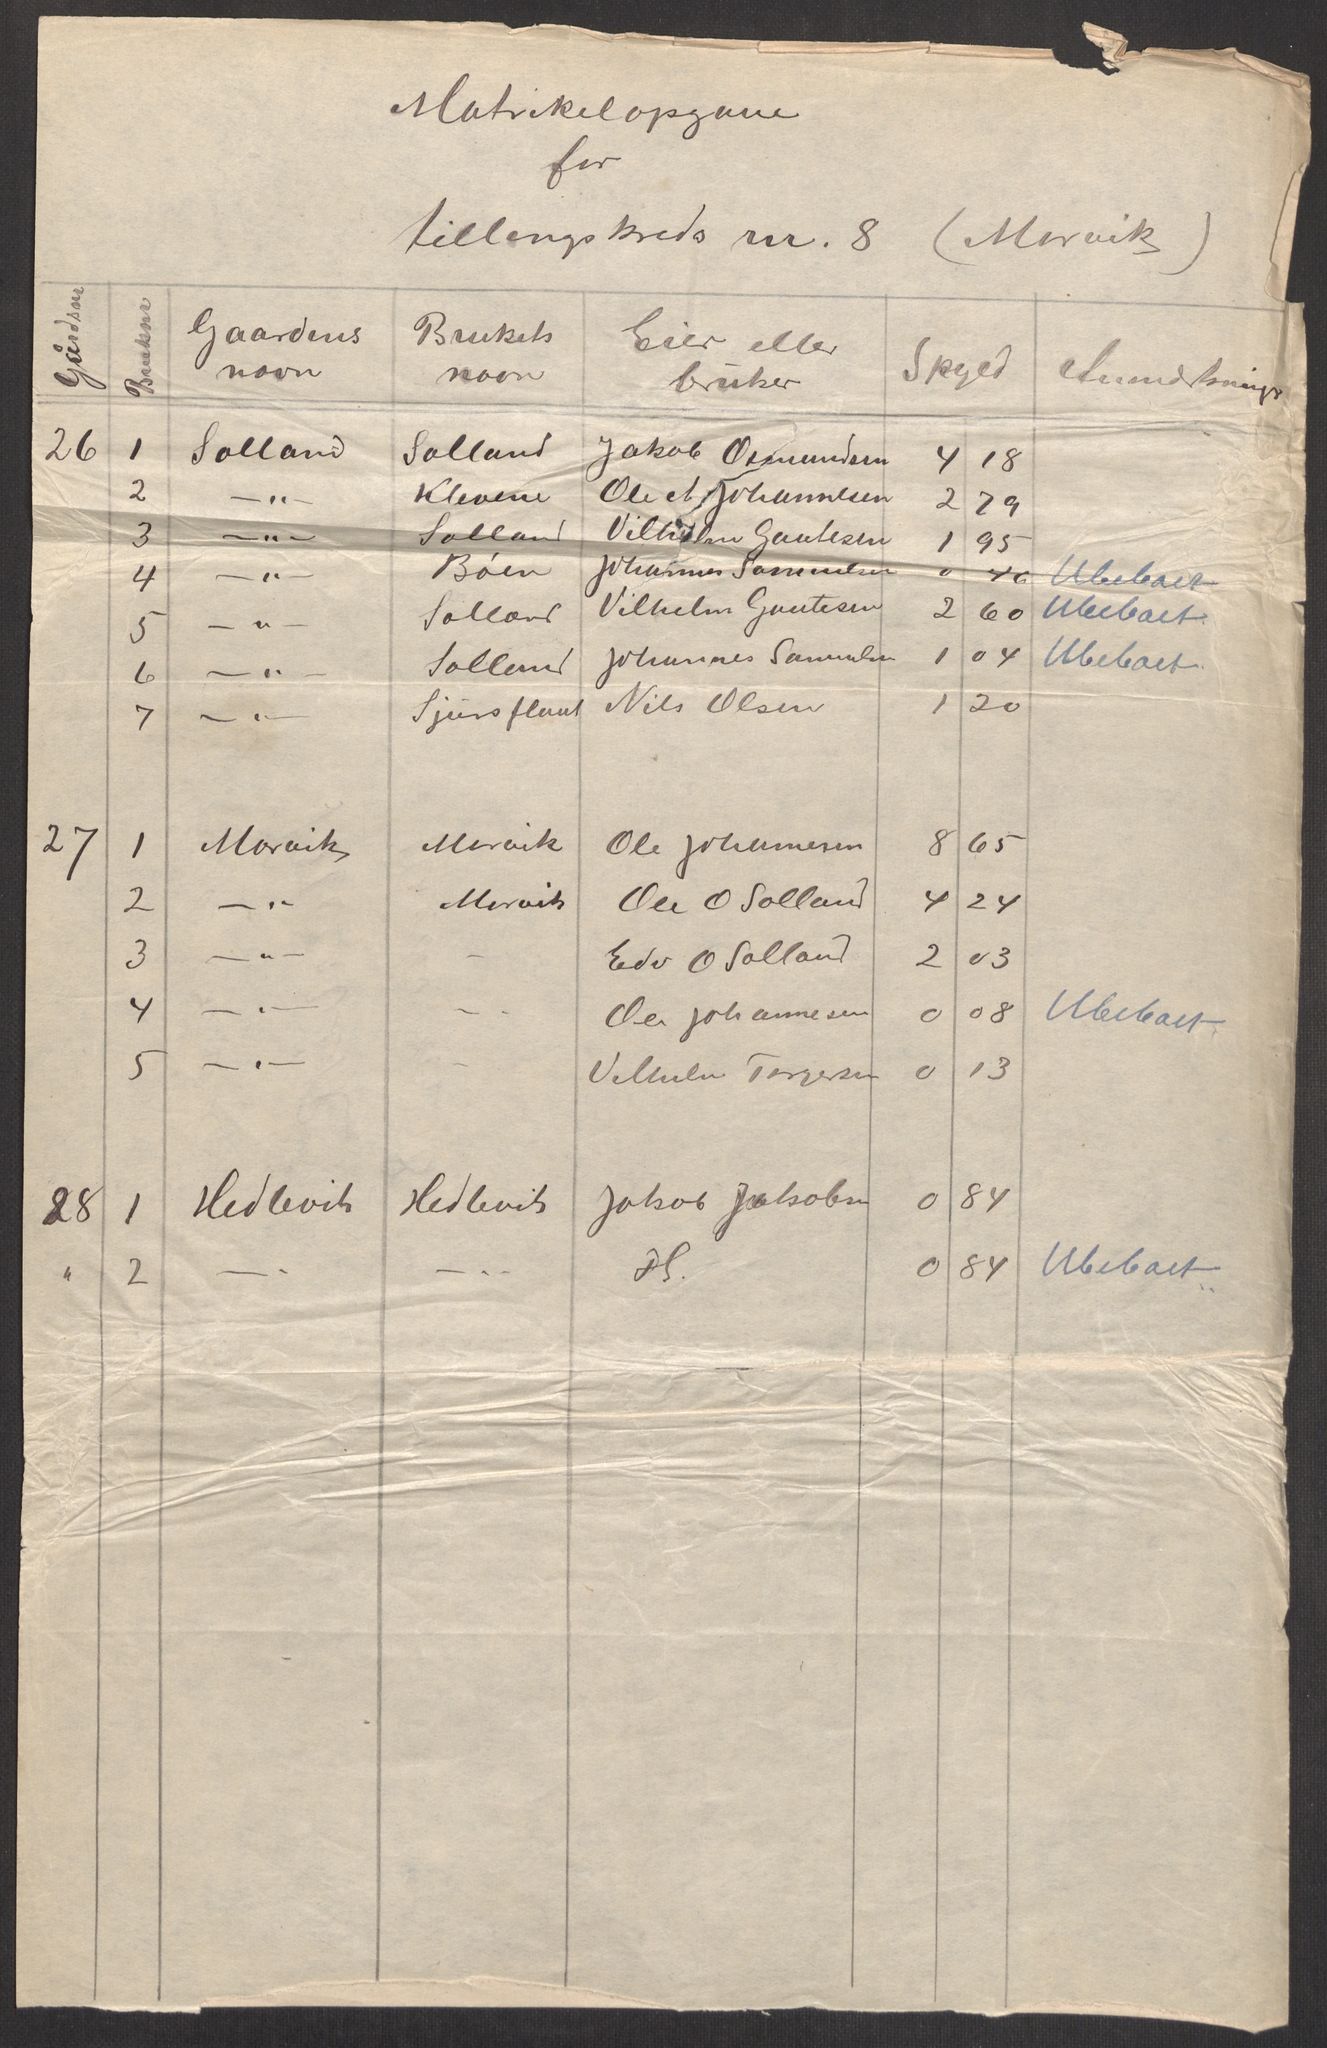 Matrikelopgave
for
tellengskreds nr. 8 (Morvik)
Gaardsnr Bruksnr Gaardens navn Brukets navn Eier eller bruker Skyld Anmerkninger
26 1 Solland Solland Jakob Osmundsen 4 18
2 —"— Klevene Ole Johannesen 2 79
3 —"— Solland Vilhelm Gautesen 1 95
4 —"— Böen Johannes Samuelsen 0 46 Ubeboet
5 —"— Solland Vilhelm Gautesen 2 60 Ubeboet
6 —"— Solland Johannes Samuelsen 1 04 Ubeboet
7 —"— Sjursflaat Nils Olsen 1 20
27 1 Morvik Morvik Ole Johannesen 8 65
2 —"— Morvik Ole O Solland 4 24
3 —"— - Edv O Solland 2 03
4 —"— - Ole Johannesen 0 08 Ubeboet
5 —"— - Vilhelm Torgersen 0 13
28 1 Hedlevik Hedlevik Jakob Jakobsen 0 84
" 2 —"— —"— 0 84 Ubeboet